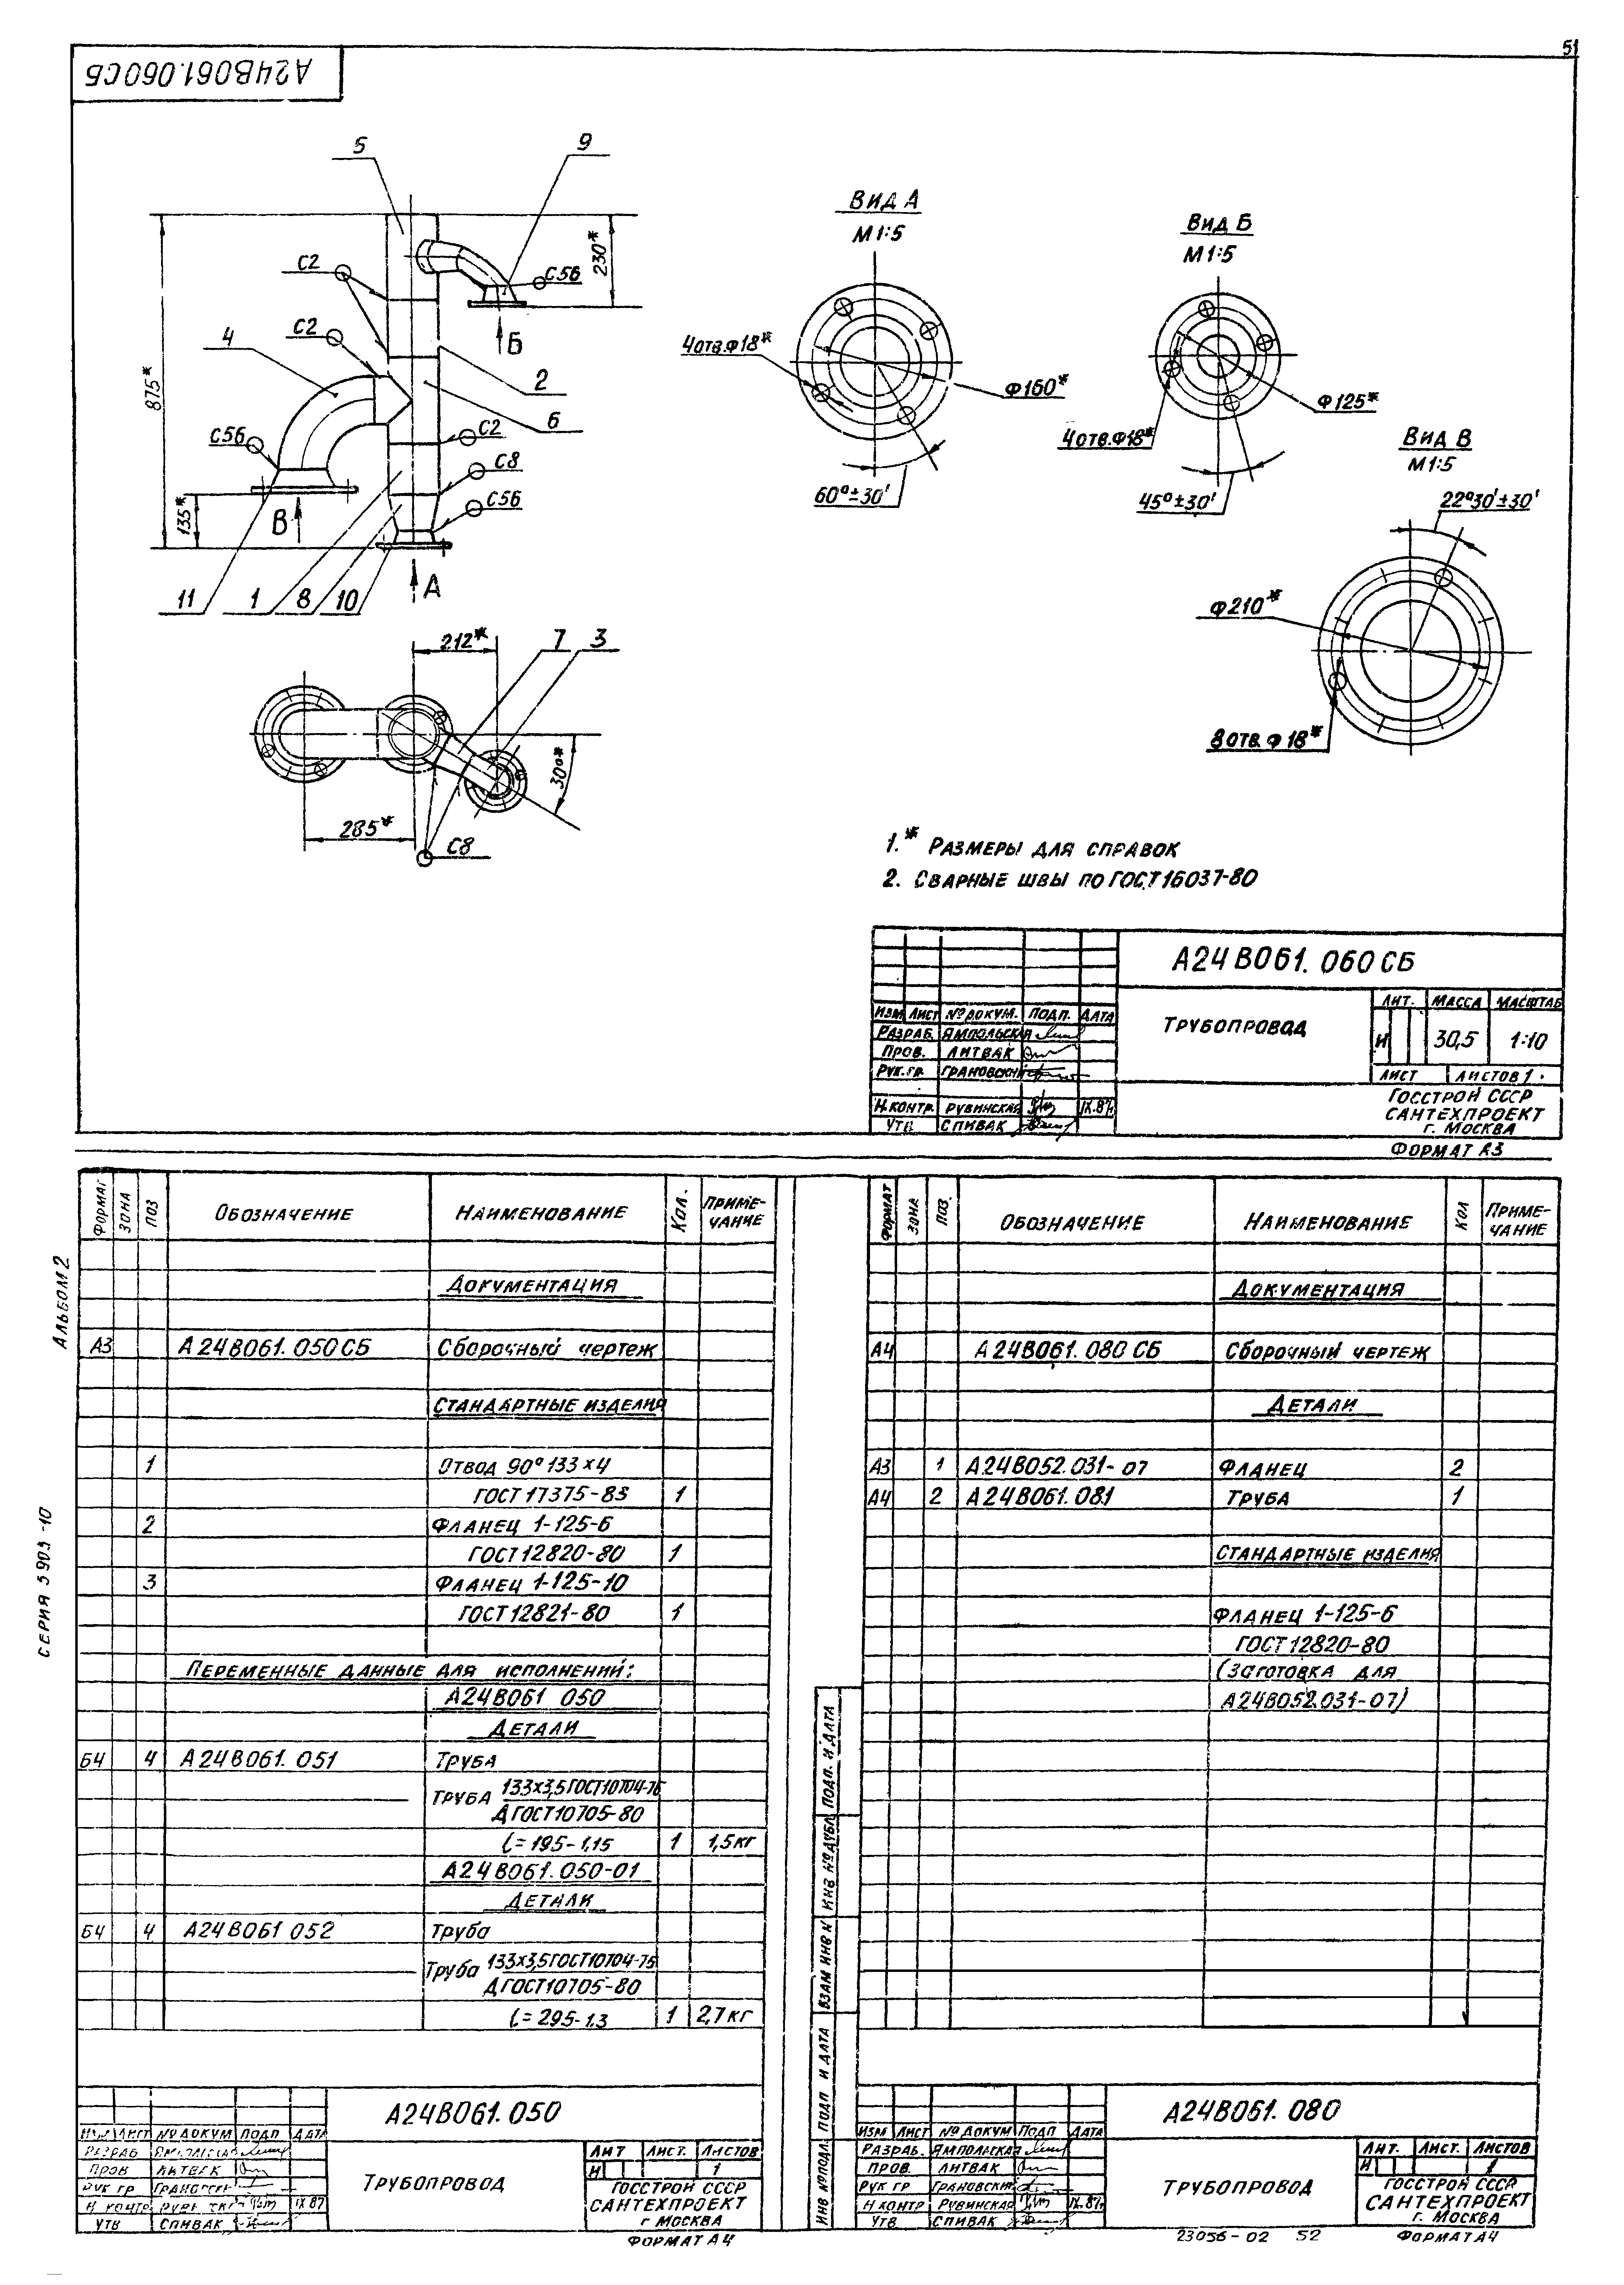 51
А24В061.060СБ
5
9
С2
С56
230*
С2
4
Б
875*
2
6
С56
С2
С8
С56
135*
В
А
11
1
8
10
212*
7
3
30°*
285*
С8
Вид А
М1:5
4отв.Ф18*
Ф160*
60°±30'
Вид Б
М1:5
4отв.Ф18*
Ф125*
45°±30'
Вид В
М1:5
22°30'±30'
Ф210*
8отв.Ф18*
1.* Размеры для справок
2. Сварные швы по ГОСТ 16037-80
А24В061.060СБ
Трубопровод
Лит. Масса Масштаб
И 30,5 1:10
Лист Листов 1
Изм Лист № докум. Подп. Дата
Разраб. Ямпольская
Пров. Литвак
Рук.гр. Грановский
Н.контр. Рувинская IX.87г.
Утв Спивак
Госстрой СССР
Сантехпроект
г. Москва
Формат А3
Альбом 2
Серия 5903-10
Формат Зона Поз Обозначение Наименование Кол. Примечание
Документация
А3 А24В061.050СБ Сборочный чертеж
Стандартные изделия
1 Отвод 90° 133×4
ГОСТ 17375-83 1
2 Фланец 1-125-6
ГОСТ 12820-80 1
3 Фланец 1-125-10
ГОСТ 12821-80 1
Переменные данные для исполнений:
А24В061 050
Детали
Б4 4 А24В061.051 Труба
Труба 133×3,5 ГОСТ 10704-76
Д ГОСТ 10705-80
l=195-1,15 1 1,5кг
А24В061.050-01
Детали
Б4 4 А24В061 052 Труба
Труба 133×3,5 ГОСТ 10704-76
Д ГОСТ 10705-80
l=295-1.3 1 2,7кг
А24В061.050
Трубопровод
Изм Лист № докум Подп Дата
Разраб Ямпольская
Пров Литвак
Рук гр Грановский
Н контр Рувинская IX 87
Утв Спивак
Лит Лист. Листов
И 1
Госстрой СССР
Сантехпроект
г Москва
Формат А4
Формат Зона Поз. Обозначение Наименование Кол Примечание
Документация
А4 А24В061.080 СБ Сборочный чертеж
Детали
А3 1 А24В052.031-07 Фланец 2
А4 2 А24В061.081 Труба 1
Стандартные изделия
Фланец 1-125-6
ГОСТ 12820-80
(Заготовка для
А24В052.031-07)
Подп. и дата
Инв № дубл
Взам инв №
Подп и дата
Инв № подл.
А24В061. 080
Трубопровод
Изм Лист № докум Подп Дата
Разраб. Ямпольская
Пров. Литвак
Рук гр Грановский
Н контр Рувинская IX.87г.
Утв Спивак
Лит. Лист. Листов
И 1
Госстрой СССР
Сантехпроект
г. Москва
23056-02 52
Формат А4